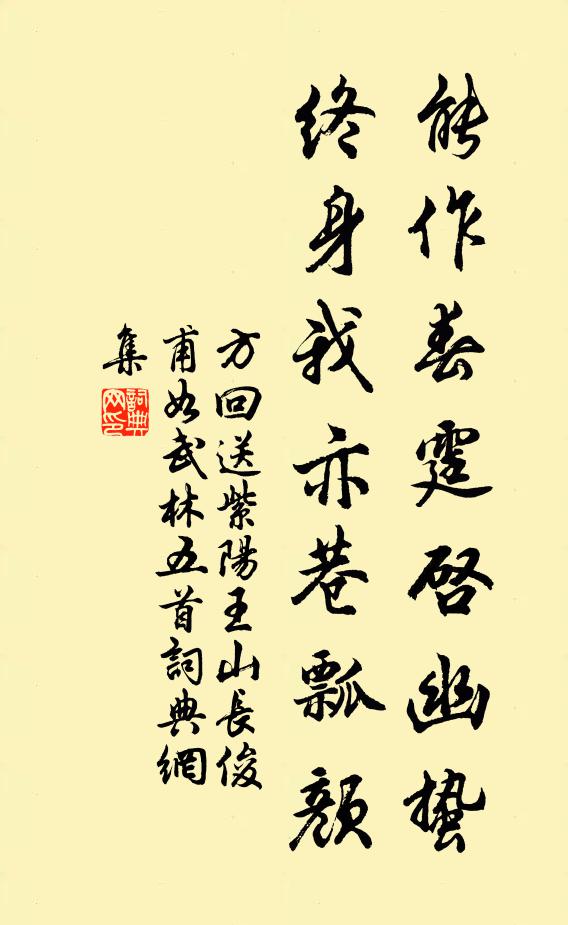 能作春霆啓幽蟄
終身我亦巷瓢顏
方回送紫陽王山長俊
甫如武林五首詞典網
集
詞典網印